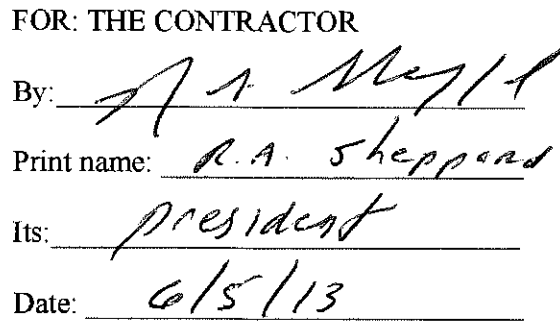 FOR: THE CONTRACTOR
By:
Print name: R.A. Sheppard
Its: president
Date: 6/5/13